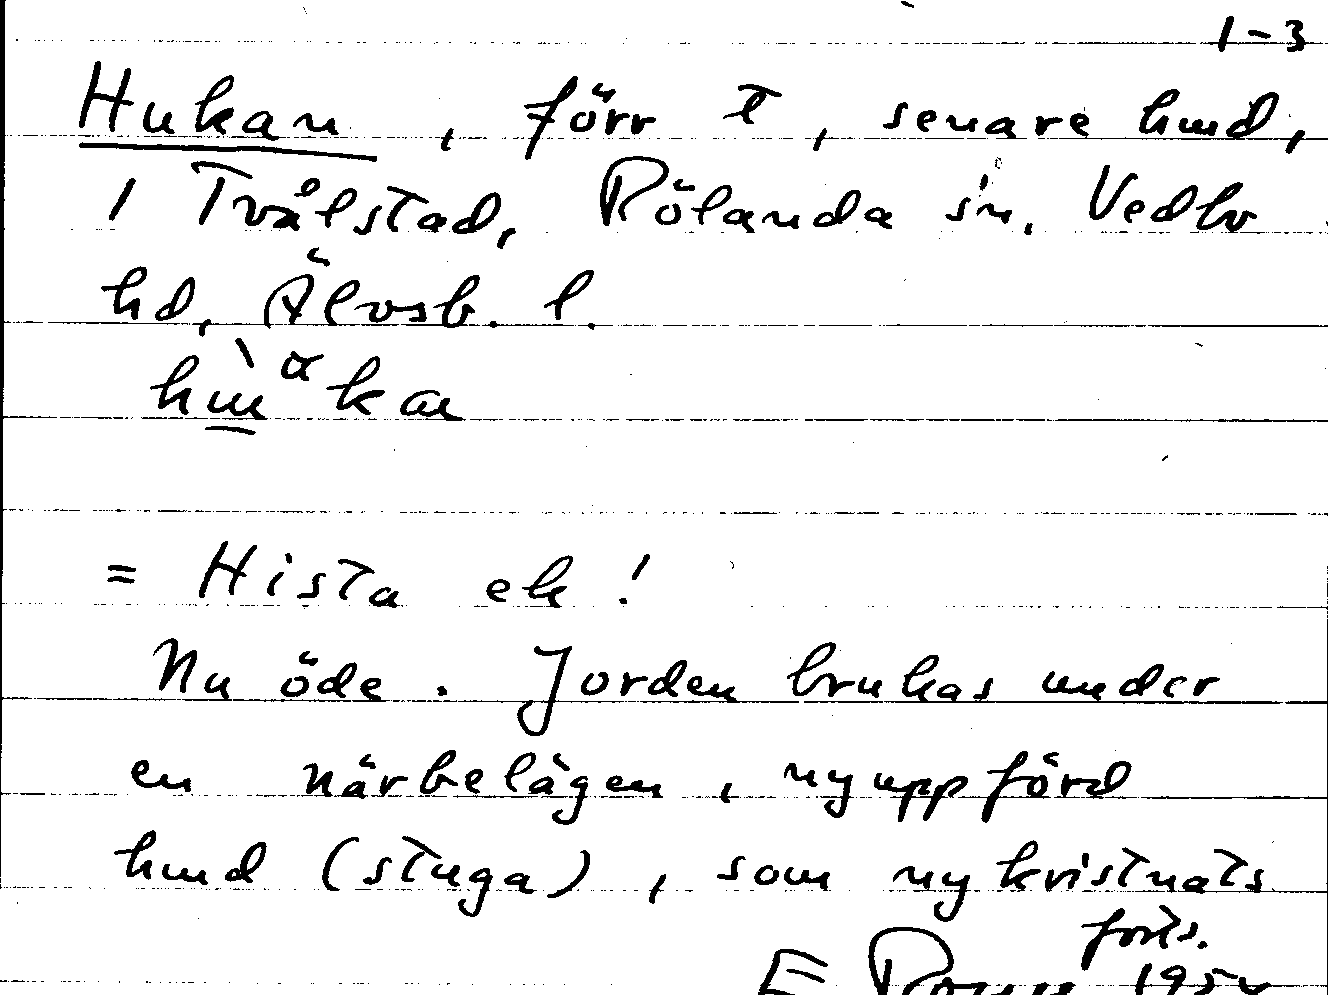 1-3
Hukan, förr t, senare hmd,
i Tvålstad, Rölanda sn. Vedbo
hd, Älvsb. l.
= Hista ek!
Nu öde. Jorden brukas under
en närbelägen, nyuppförd
hmd (stuga), som nykristnats
forts.
E